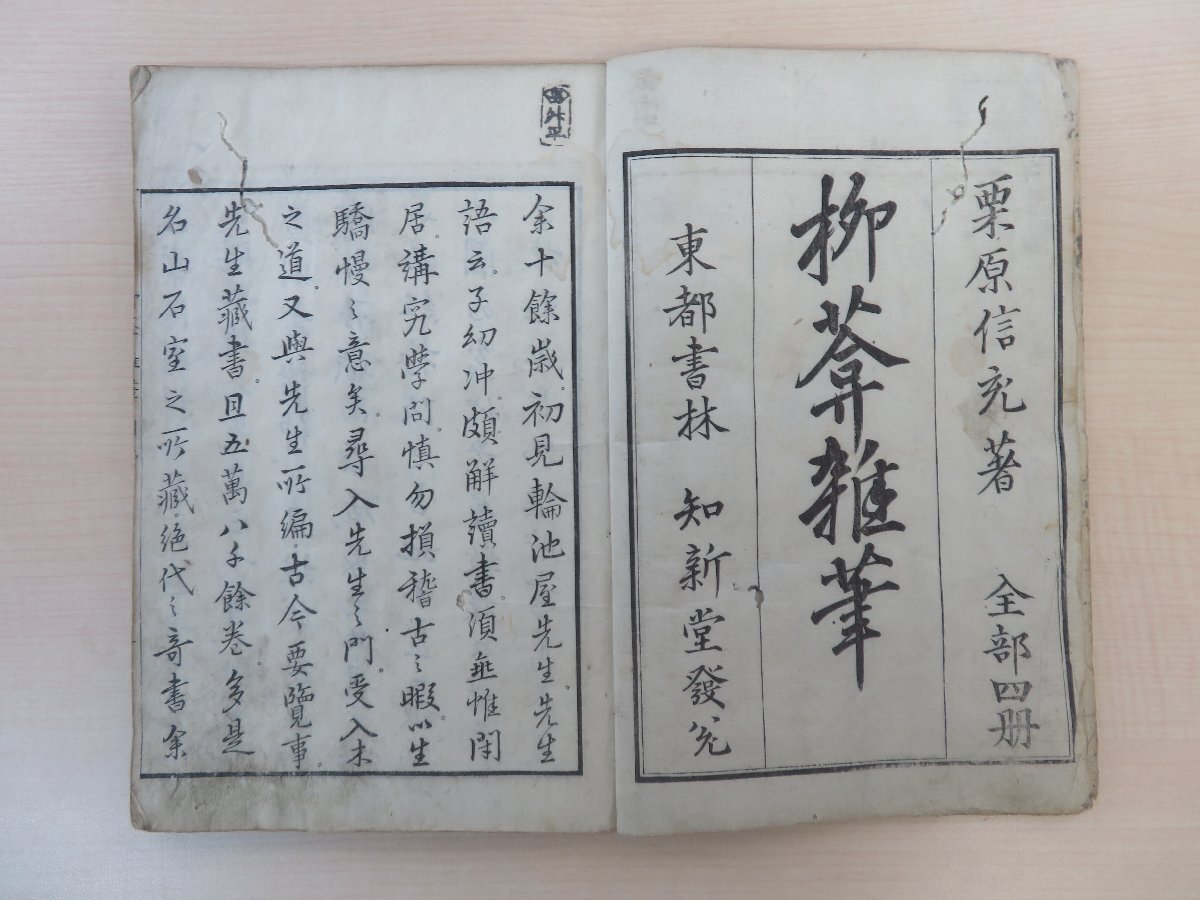 栗原信充著　全部四册
柳菴雜筆
東都書林　知新堂發兌
余十餘歲。初見輪池屋先生。先生
語云。子幼冲。頗解讀書。須無惟閑
居。講究學問。慎勿損稽古之暇。以生
驕慢之意矣。尋入先生之門。受入木
之道。又與先生所編。古今要覽事。
先生藏書。且五萬八千餘卷。多是
名山石室之所藏。絕代之奇書余